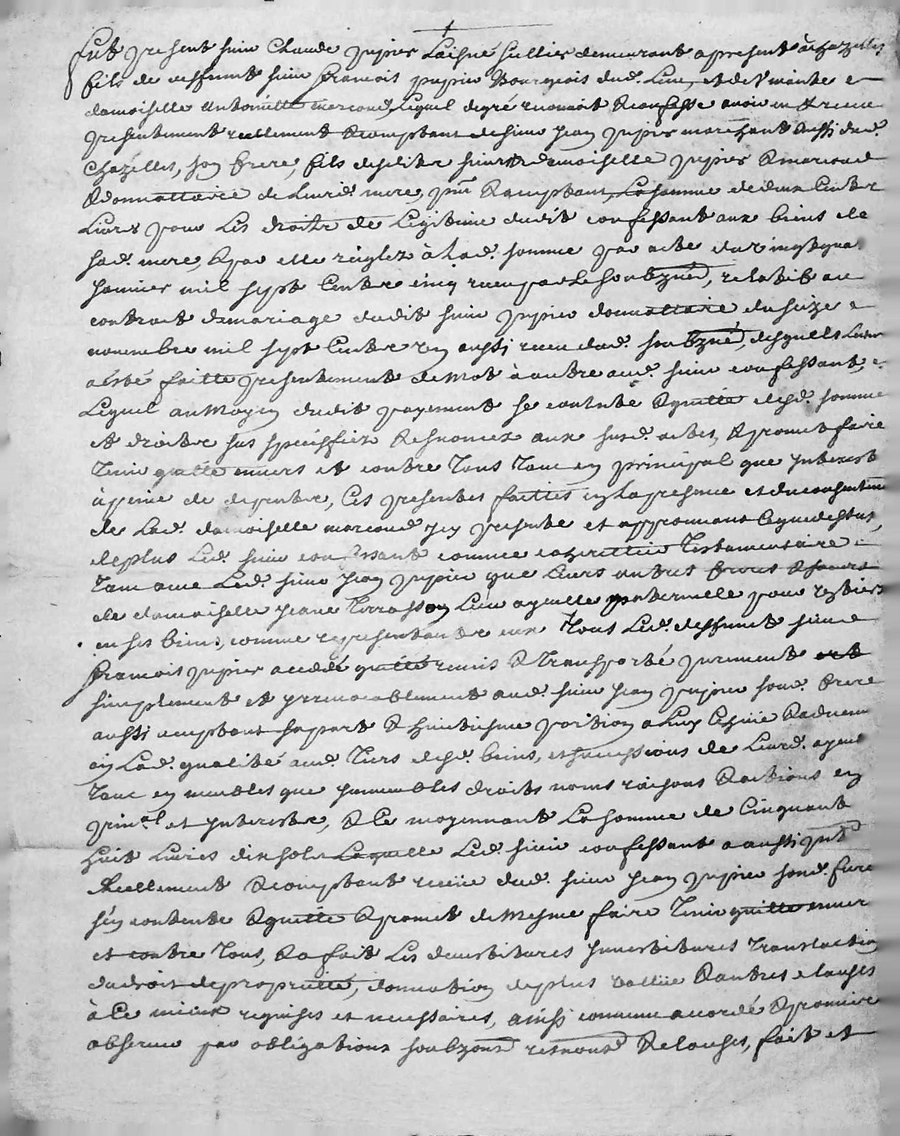 fut present sieur Claude jupier Laisné sellier demeurant a present à chazelles
fils de deffunt sieur francois jupier Bourgeois dud. Lieu, et de vivante
damoiselle antoinette marcoud, Lequel de gré reconoit & confesse avoir eu & receu
presentement reellement & comptant de sieur jean jupier marchant aussi dud.
Chazelles, son frere, fils desdits sieur & damoiselle jupier & marcoud
& donnattaire de Leurd. mere, pnt & acceptant, La somme de deux Cents
Livres pour Les droits de Legitime dudit confessant aux biens de
sad. mere, & par elle reiglez à Lad. somme par acte du vingt quat
janvier mil sept Cents cinq receu par Le soubzné, relatif au
contrat de mariage dudit sieur jupier donnattaire du seize
novembre mil sept Cents aussi receu dud. soubzné, desquels Lecture
a esté faitte presentement de mot à autre aud. sieur confessant,
Lequel au moyen dudit payement se contente & quitte desd. somme
et droits sus speciffiez & renonce aux susd. actes, & promet faire
Tenir quitte envers et contre Tous Tant en principal que jnterest
à peine de depents, Ces presentes faittes en La presence et du consentem
de Lad. damoiselle marcoud jcy presente et approuvant Ce que dessus,
de plus Led. sieur confessant comme coheritier Testamentaire
Tant avec Led. sieur jean jupier que Leurs autres freres & soeurs
de damoiselle jeane Terrasson Leur ayeulle paternelle pour un tiers
en ses biens, comme representants eux Tous Led. deffunt sieur
francois jupier a cedé quitté remis & Transporté purement
simplement et jrrevocablement aud. sieur jean jupier sond. frere
aussi acceptant sa part & huitiesme portion a Luy Echeüe & advenue
en Lad. qualité aud. Tiers desd. biens, et successions de Leurd. ayeul
Tant en meubles que jmmeubles droits noms raisons & actions en
prinal et jnterests, & Ce moyennant La somme de Cinquant
huit Livres dix sols Laquelle Led. sieur confessant a aussi pnt
Reellement & comptant receüe dud. sieur jean jupier sond. frere
s'en contente & quitte & promet de mesme faire Tenir quitte envers
et contre Tous, & a fait Les devestitures jnvestitures Translaction
du droit de proprietté, donnation de plus vallue & autres clauses
à Ce mieux requises et necessaires, ainsi convenu accordé & promis
observer par obligations soubzons renonts & clauses, fait et